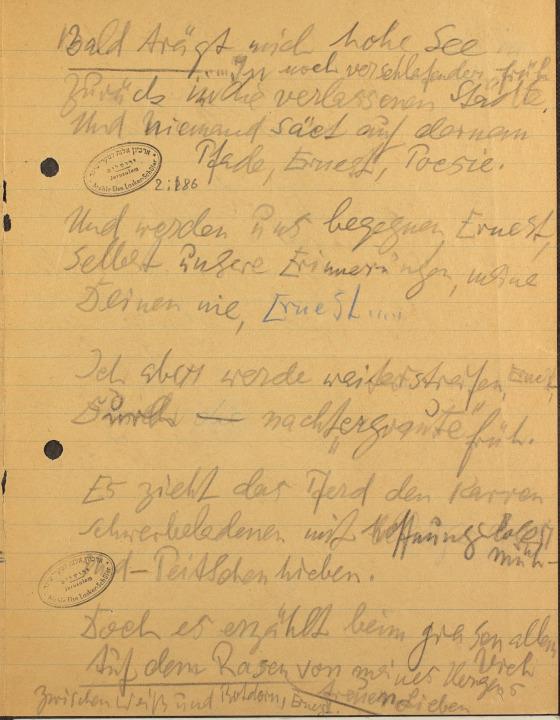 Bald trägt mich hohe See
in noch verschlafender früh
Zurück in die verlassenen Städte.
Und Niemand säet auf dornam
Pfade, Ernest, Poesie.
ארכיון אלזה לסקר-שילר
ירושלים
Jerusalem
Archiv Else Lasker-Schüler
2:186
Und werden uns begegnen, Ernest,
Selbst unsere Erinnerungen, meine
Deinen nie, Ernest....
Ich aber werde weiterstreifen, Ernest,
Durch nacht„ergraute" früh.
Es zieht das Pferd den Karren
Schwerbeladenen mit Hoffnungslosen
müh-
d-Peitschenhieben.
ירושלים
Jerusalem
Archiv Else Lasker-Schüler
Doch es erzählt beim grasen allem
Vieh
Auf dem Rasen von meines Herzens
zwischen Weiß und Rotdorn, Ernest. treuen Lieben